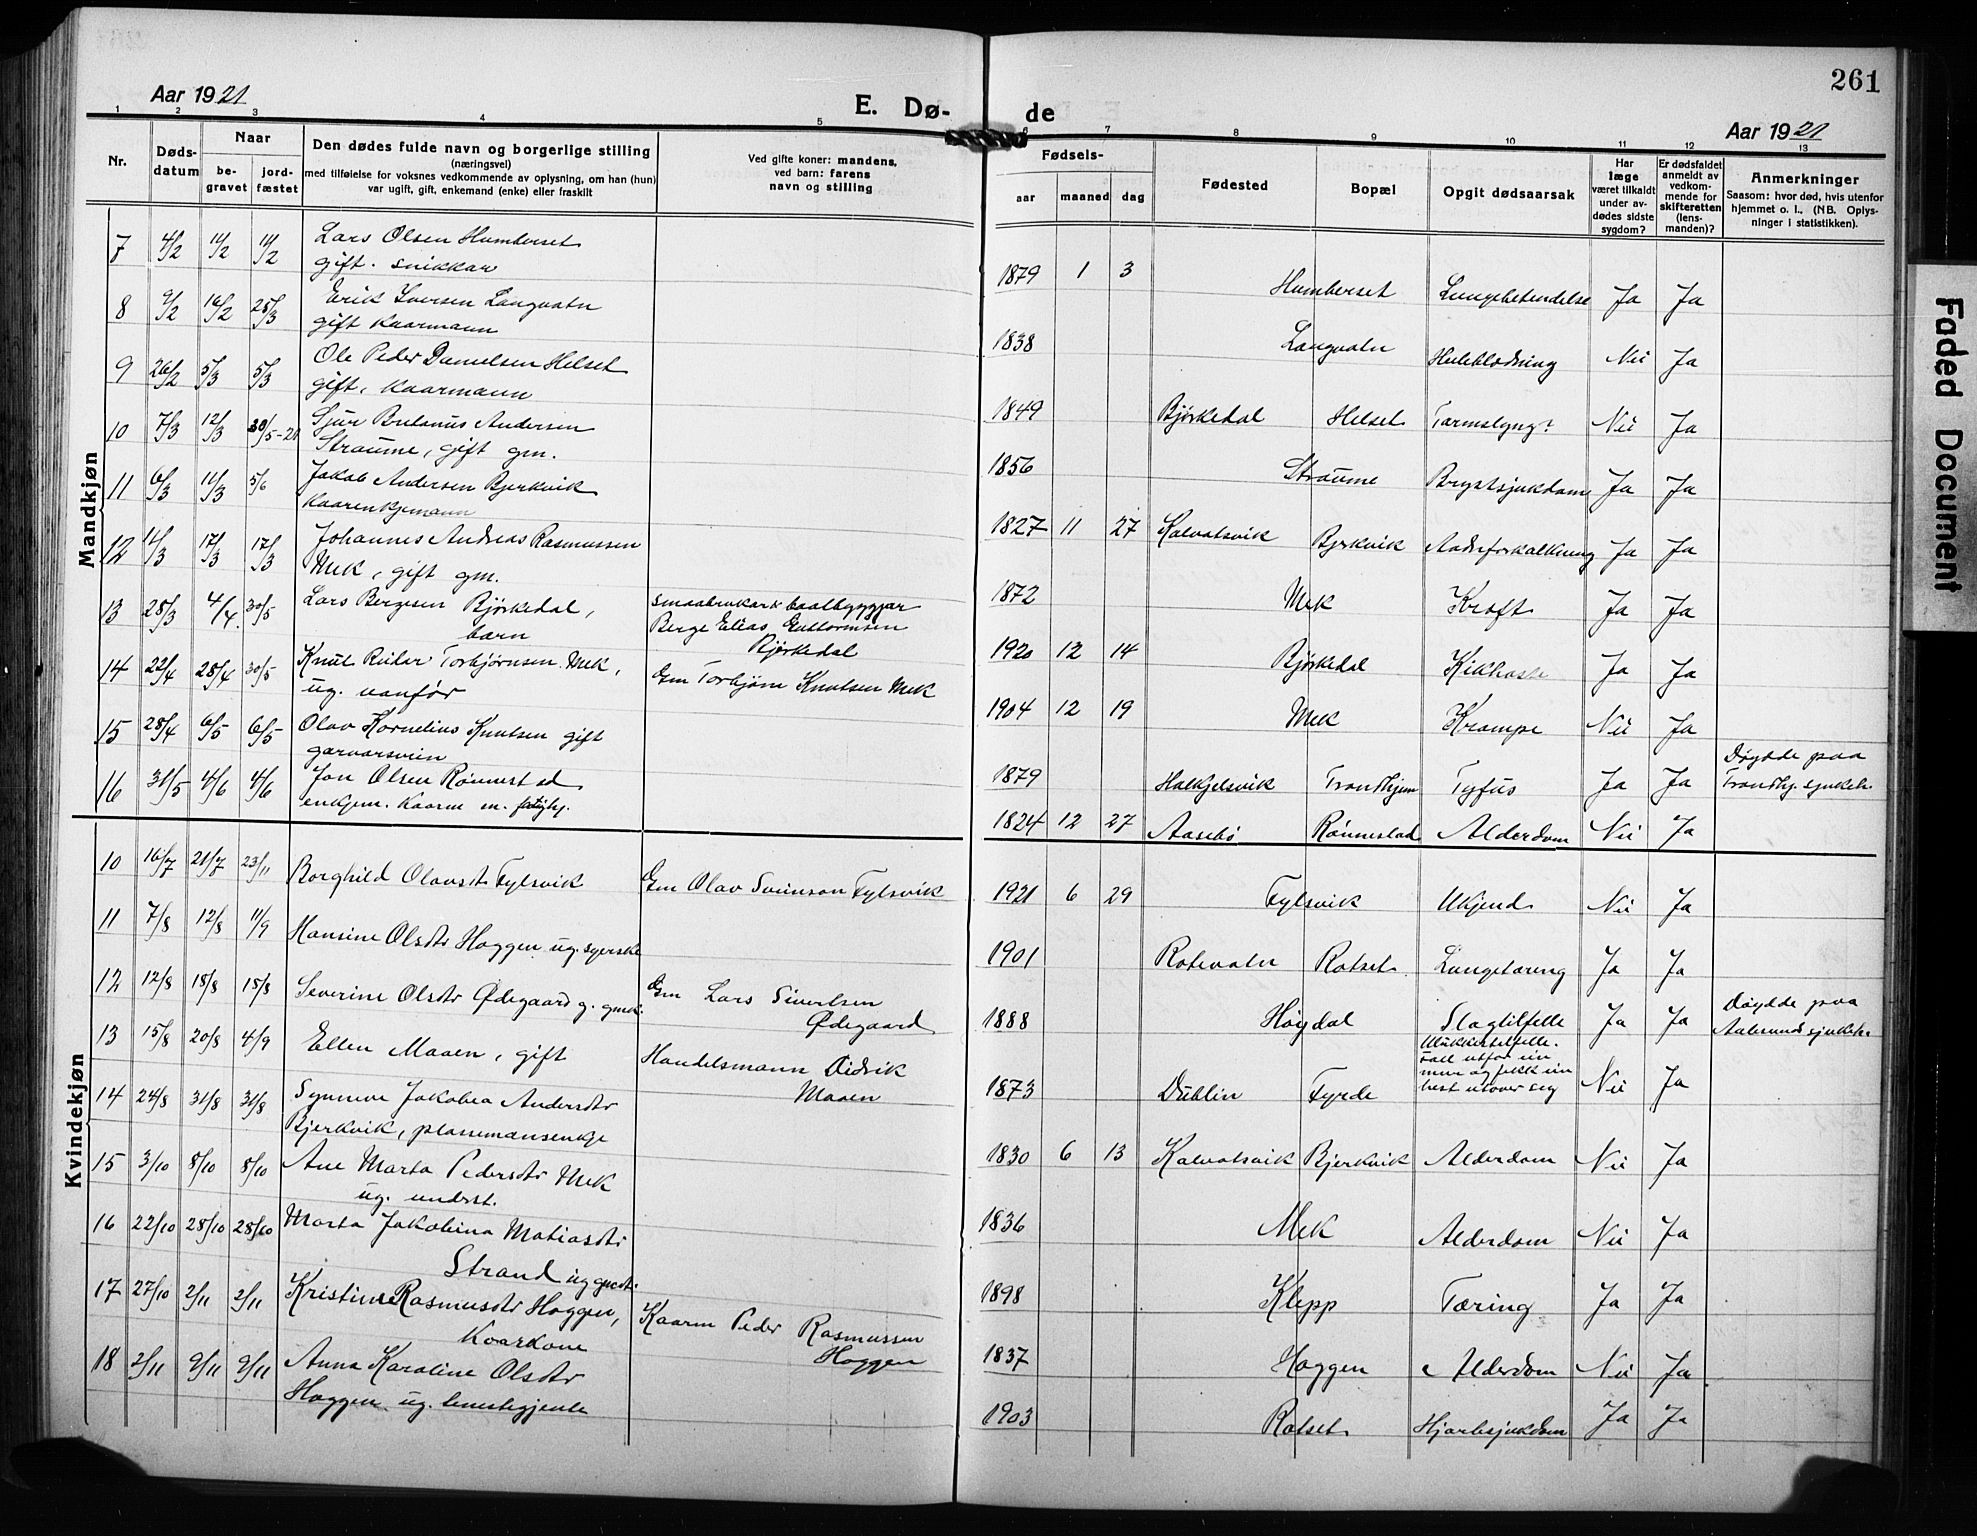 261
Aar 1921
E. Dø-
de
Aar 1921
1 2 3 4 5 6 7 8 9 10 11 12 13
Nr.
Døds-
datum
Naar
be-
gravet
jord-
fæstet
Den dødes fulde navn og borgerlige stilling
(næringsvei)
med tilføielse for voksnes vedkommende av oplysning, om han (hun)
var ugift, gift, enkemand (enke) eller fraskilt
Ved gifte koner: mandens,
ved barn: farens
navn og stilling
Fødsels-
aar
maaned
dag
Fødested
Bopæl
Opgit dødsaarsak
Har
læge
været tilkaldt
under av-
dødes sidste
sygdom?
Er dødsfaldet
anmeldt av
vedkom-
mende for
skifteretten
(lens-
manden)?
Anmerkninger
Saasom: hvor død, hvis utenfor
hjemmet o. l., (NB. Oplys-
ninger i statistikken).
Mandkjøn
7 4/2 11/2 11/2 Lars Olsen Humberset
gift. snikkar
1879 1 3 Humberset Lungebetendelse Ja Ja
8 9/2 16/2 25/3 Erik Iversen Langvatn
gift Kaarmann
1838 Langvatn Heileblødning Nei Ja
9 26/2 5/3 5/3 Ole Peder Danielsen Helset
gift, Kaarmann
1849 Bjørkedal Helset Tarmslyng? Nei Ja
10 7/3 12/3 30/5-21 Sjur Andersen
Straume, gift gm.
1856 Straume Brystsjukdom Ja Ja
11 6/3 11/3 5/6 Jakob Andersen Bjerkvik
Kaarenkjemann
1827 11 27 Kalvatsvik Bjerkvik Aadreforkalkning Ja Ja
12 11/3 17/3 17/3 Johannes Andreas Rasmussen
Mek, gift gm.
1872 Mek Kræft Ja Ja
13 28/3 4/4. 30/5 Lars Bergesen Bjørkedal,
barn
smaabrukar & baatbyggjar
Berge Elias Guttormsen
Bjørkedal
1920 12 14 Bjørkedal Kikhoste Ja Ja
14 22/4 28/4 30/5 Knut Reidar Torbjørnsen Mek,
ug. vanfør
Gm Torbjørn Knutsen Mek
1904 12 19 Mek Krampe Nei Ja
15 28/4 6/5 6/5 Olav Kornelius Knutsen gift
garvarsvein
1879 Halkjelsvik Trondhjem Tyfus Ja Ja Døydde paa
Trondhj. sjukeh.
16 31/5 4/6 4/6 Jon Olsen Rønnestad
enkjem. Kaarm.
1824 12 27 Aasebø Rønnestad Alderdom Nei Ja
Kvindekjøn
10 16/7 21/7 23/11 Borghild Olavsdt Fylsvik
Gm Olav Sveinson Fylsvik
1921 6 29 Fylsvik Ukjend Nei Ja
11 7/8 12/8 11/9 Hansine Olsdtr Haggen ug. syerske
1901 Rotevatn Rotset. Lungetæring Ja Ja
12 12/8 18/8 18/8 Severine Olsdtr Ødegaard g. gmk.
Gm Lars Sivertsen
Ødegaard
1888 Høydal Slagtilfelle Ja Ja Døydde paa
Aalesund sjukeh.
13 15/8 20/8 4/9 Ellen Maaen, gift
Handelsmann Didrik
Maaen
1873 Dublin Fyrde Ulukkestilfelle.
Fall utfor ein
mur og fekk ein
hest utover seg Nei Ja
14 24/8 31/8 31/8 Synneve Jakobea Andersdtr
Bjerkvik, plassemansenkje
1830 6 13 Kalvatsvik Bjerkvik Alderdom Nei Ja
15 3/10 8/10 8/10 Ane Marta Pedersdtr Mek
ug. underst.
1836 Mek Alderdom Nei Ja
16 22/10 28/10 28/10 Marta Jakobina Matiasdtr
Strand ug gmdt.
1898 Klepp Tæring Ja Ja
17 27/10 2/11 2/11 Kristine Rasmusdtr Haggen,
Kaarkone
Kaarm Peder Rasmussen
Haggen
1837 Haggen Alderdom Nei Ja
18 2/11 9/11 9/11 Anna Karoline Olsdtr
Haggen ug. tenestegjente
1903 Rotset. Hjartesjukdom Ja Ja
Faded Document